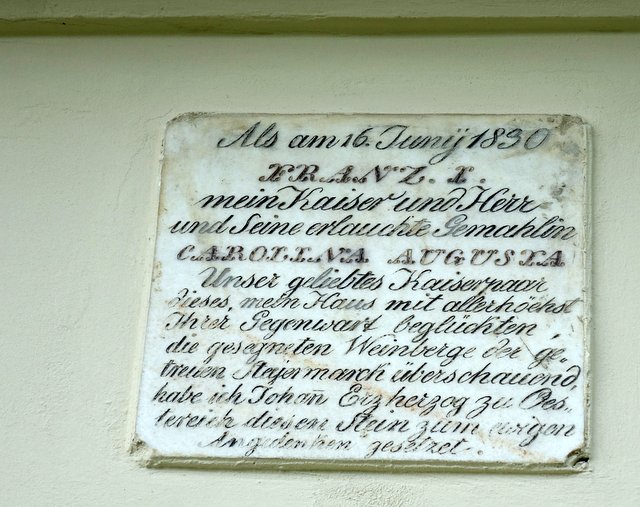 Als am 16. Junÿ 1830
FRANZ. I.
mein Kaiser und Herr
und Seine erlauchte Gemahlin
CAROLINA AUGUSTA
Unser geliebtes Kaiserpaar
dieses, mein Haus mit allerhöchst
Ihrer Gegenwart beglückten,
die gesegneten Weinberge der ge-
treuen Steÿermarck überschauend,
habe ich Johan̄ Erzherzog zu Oes-
tereich diesen Stein zum ewigen
Angedenken gesetzet.